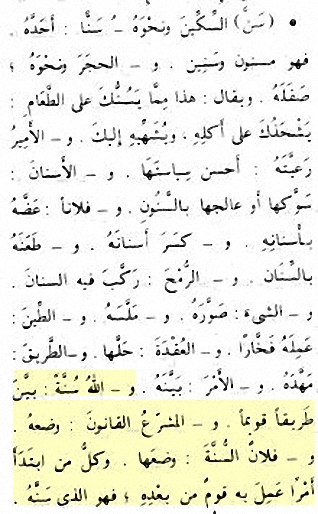 • (سَنَّ) السِّكِّينَ ونحْوَهُ ـُ سَنًّا : أحَدَّهُ .
فهو مسنون وسَنِين . و – الحجَرَ ونحْوَهُ :
صَقَلَهُ . ويقال : هذا مِمَّا يَسُنُّكَ على الطَّعَامِ :
يَشْحَذُكَ على أكلِهِ ، ويُشَهِّيهِ إليكَ . و – الأَمِيرُ
رَعيَّتَهُ : أحسن سِياستَهَا . و – الأَسنانَ :
سَوَّكها أو عالجها بالسَّنُونِ . و – فلاناً : عَضَّهُ
بأَسنانِهِ . و – كسَرَ أسنانَهُ . و – طَعَنَهُ
بالسِّنَانِ . و – الرُّمْحَ : رَكَّبَ فيه السنانَ .
و – الشىءَ : صَوَّرَهُ . و – مَلَّسَهُ . و – الطِّينَ :
عَمِلَهُ فَخَّارًا . و – العُقْدَةَ : حَلَّها . و–الطَّريقَ :
مَهَّدَهُ . و – الأَمْرَ : بَيَّنَهُ . و – اللهُ سُنَّةً : بيَّنَ
طَريقاً قويماً . و – المشرِّعُ القانونَ : وضعهُ .
و – فلانٌ السُّنَّةَ : وضعَها . وكلُّ من ابتَدَأَ
أمْرًا عَمِلَ به قومٌ من بعْدِهِ ؛ فهو الذى سَنَّهُ .